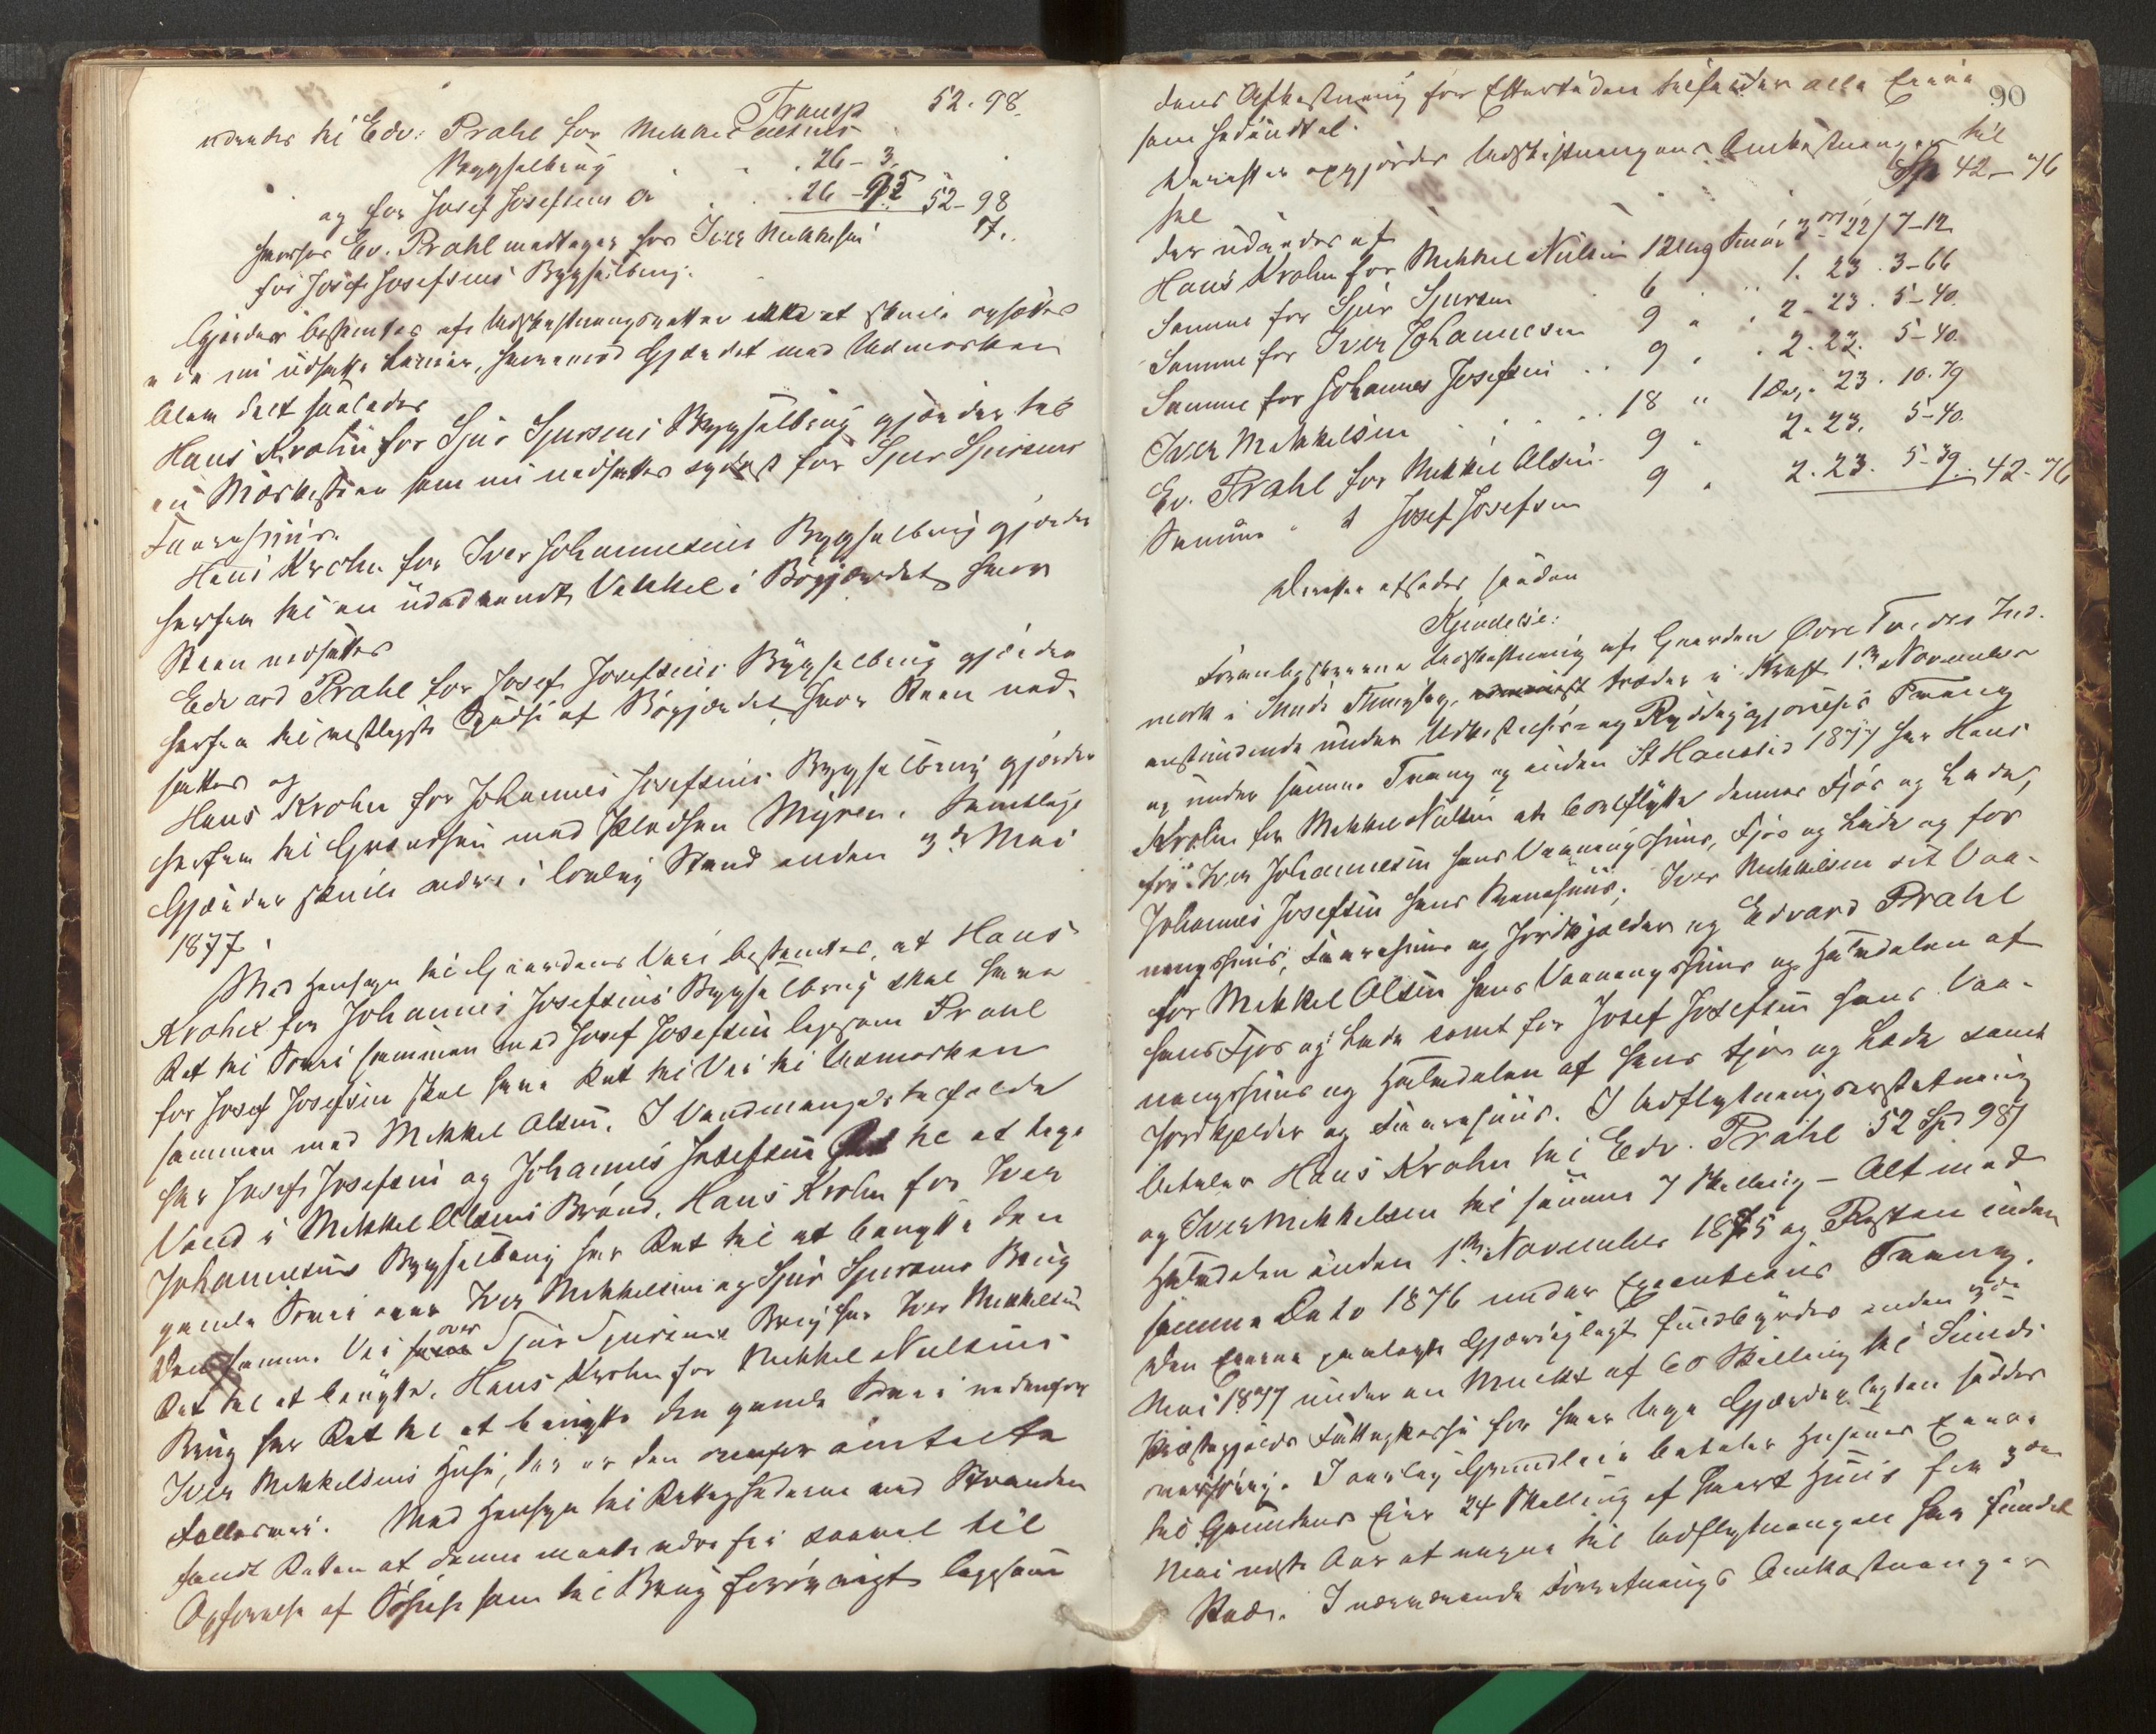 Transp 52. 98.
udredes til Edv. Prahl for Mekkel Olsens
Bygselbrug 26 – 3.
og for Josef Josefsens d: 26 – 95 52 – 98
hvorhos Ev. Prahl modtager fra Iver Mikkelsen 7.
for Josef Josefsens Bygselbrug.
Gjerder bestemtes af Udskiftningsretten ikke at skulle opsættes
i de nu udsatte Linier, hvorimod Gjerdet mod Udmarken
blev delt saaledes
Hans Krohn for Sjur Sjursens Bygselbrug gjerder til
en Markesten som nu nedsattes sydost for Sjur Sjursens
Taarnhuus.
Hans Krohn for Iver Johannesens Bygselbrug gjerder
herfra til en udadvendt Vinkel i Bøgjerdet hvor
Steen nedsattes
Edvard Prahl for Josef Josefsens Bygselbrug gjerder
herfra til vestligste Pynt af Bøgjerdet hvor Steen ned-
sattes og
Hans Krohn for Johannes Josefsens Bygselbrug gjerder
herfra til Grændsen med Pladsen Myren. Samtlige
Gjerder skulle være i lovlig Stand inden 3die Mai
1877.
Med Hensyn til Gaardens Veie bestemtes, at Hans
Krohn for Johannes Josefsens Bygselbrug skal have
Ret til Vei sammen med Josef Josefsen ligesom Prahl
for Josef Josefsen skal have Ret til Vei til Udmarken
sammen med Mekkel Olsen. I Vandmangelstilfælde
har Josef Josefsen og Johannes Josefsen Ret til at tage
Vand i Mekkel Olsens Brønd. Hans Krohn for Iver
Johannesens Bygselbrug har Ret til at benytte den
gamle Vei over Iver Mikkelsens og Sjur Sjursens Brug
Den samme Vei over Sjur Sjursens Brug har Iver Mikkelsen
Ret til at benytte. Hans Krohn for Mekkel Nielsens
Brug har Ret til at benytte den gamle Vei nedenfor
Iver Mikkelsens Huse, der er den ovenfor omtalte
Fællesvei. Med Hensyn til Rettighederne ved Stranden
fandt Retten at denne maatte være fri saavel til
Opførelse af Søhuse som til Brug forøvrigt ligesom
90
dens Afkastning for Eftertiden tilfalder alle Eiere
som hidindtil.
Derefter opgjordes Udskiftningens Omkostninger til
Spd 42 – 76
der udredes af
Hans Krohn for Mekkel Nielsen 12 mrg Smør 3 ort 22/ 7–12
Samme for Sjur Sjursen 6 1. 23. 3–66
Samme for Iver Johannesen 9 2 – 23. 5–40.
Samme for Johannes Josefsen 9 2. 23. 5–40.
Iver Mikkelsen 18 " 1 Dr. 23. 10.79
Ev. Prahl for Mekkel Olsen 9 2. 23. 5–40.
Samme " Josef Josefsen 9 2. 23. 5–39. 42–76
Derefter afsagdes saadan
Kjendelse:
Foranbeskrevne Udskiftning af Gaarden Øvre Tvedes Ind-
mark i Sunds Thinglag, træder i Kraft 1ste November
anstundende under Udkastelses- og Ryddiggjørelses Tvang
og under samme Tvang og inden St Hanstid 1877 har Hans
Krohn for Mekkel Nielsen at bortflytte dennes Fjøs og Lade,
for Iver Johannesen hans Vaaningshuus, Fjøs og Lade og for
Johannes Josefsen hans Taarnhuus. Iver Mikkelsen sit Vaa-
ningshuus, Taarnhuus og Jordkjelder og Edvard Prahl
for Mekkel Olsen hans Vaaningshuus og Halvdelen af
hans Fjøs og Lade samt for Josef Josefsen hans Vaa-
ningshuus og Halvdelen af hans Fjøs og Lade samt
Jordkjelder og Taarnhuus. I Udflytningserstatning
betaler Hans Krohn til Edv. Prahl 52 Spd 98/
og Iver Mikkelsen til samme 7 Skilling – Alt med
Halvdelen inden 1ste November 1875 og Resten inden
samme Dato 1876 under Executions Tvang.
Den Eierne paalagte Gjerdepligt fuldbyrdes inden 3die
Mai 1877 under en Mulkt af 60 Skilling til Sunds
Præstegjelds Fattigkasse for hver Uge Gjerdepligten sidder
overhørig. I aarlig Grundleie betaler Husenes Eiere
til Grundens Eier 24 Skilling af hvert Huus fra 3die
Mai næste Aar at regne til Udflytningen har fundet
Sted. I nærværende Forretnings Omkostninger